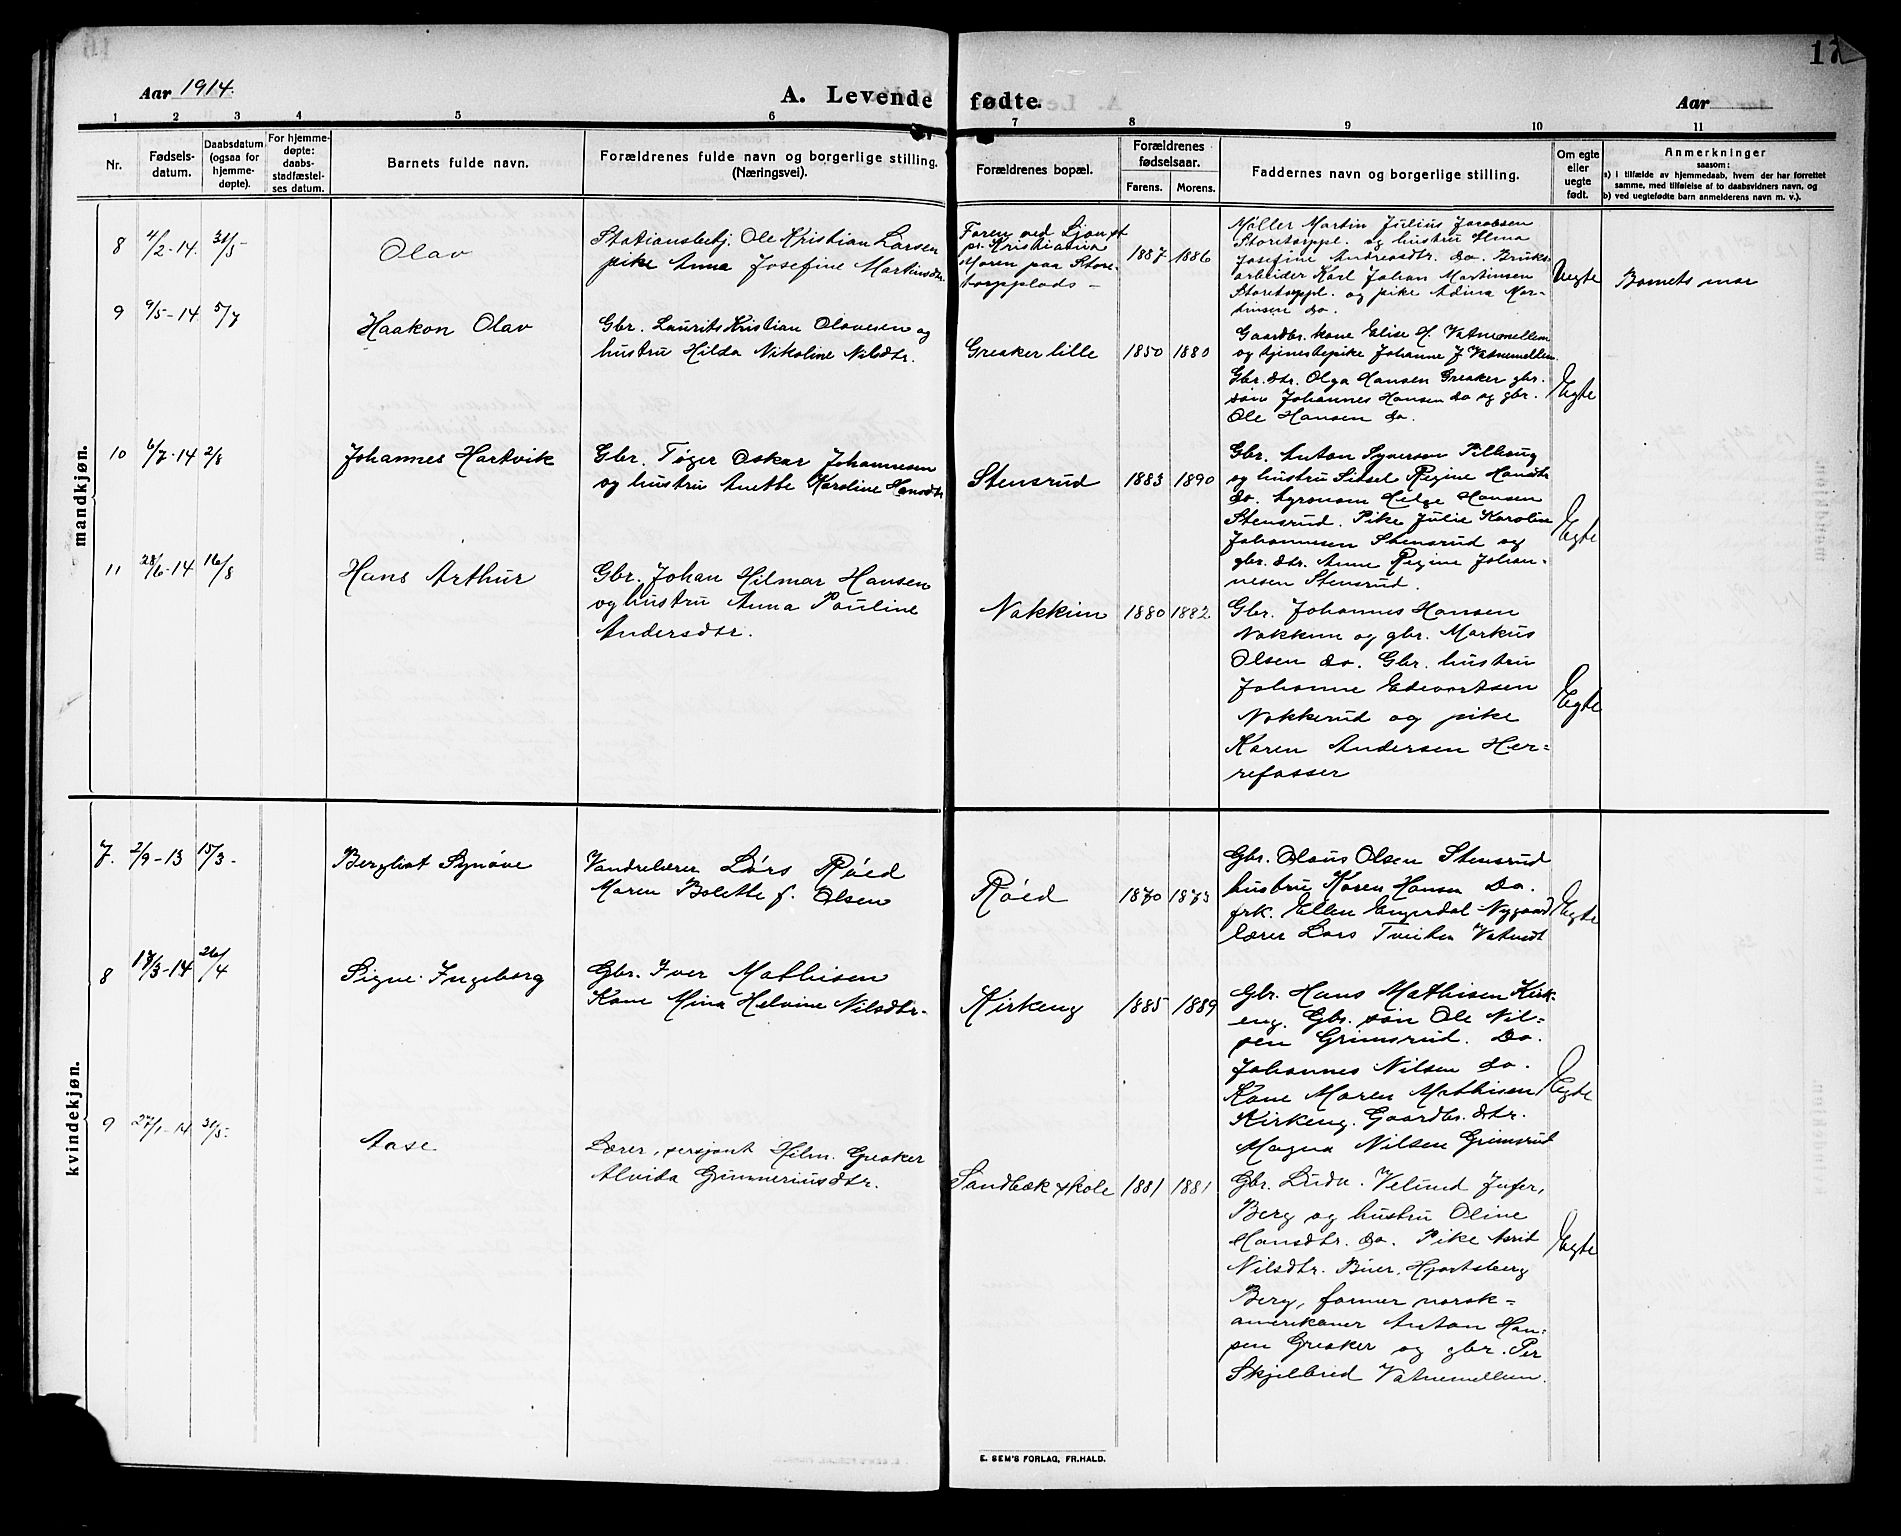 Aar 1914.
A. Levende fødte.
17
Aar
1 2 3 4 5 6 7 8 9 10 11
Nr.
Fødsels-
datum.
Daabsdatum
(ogsaa for
hjemme-
døpte).
For hjemme-
døpte:
daabs-
stadfæstel-
ses datum.
Barnets fulde navn.
Forældrenes fulde navn og borgerlige stilling.
(Næringsvei).
Forældrenes bopæl.
Forældrenes
fødselsaar.
Farens. Morens.
Faddernes navn og borgerlige stilling.
Om egte
eller
uegte
født.
Anmerkninger
saasom:
a) i tilfælde av hjemmedaab, hvem der har forrettet
samme, med tilføielse af to daabsvidners navn, og
b) ved uegtefødte barn anmelderens navn m. v.).
mandkjøn.
8 4/2-14. 31/5
Olav
Stationsbetj. Ole Kristian Larsen
pike Anna Josefine Martinsdtr.
Faren ved Ljan st
pr. Kristiania
Moren paa Store-
torpplads -
1887 1886
Møller Martin Julius Jacobsen
Storetorppl. og hustru Elma
Josefine Andreasdtr. do. Bruks-
arbeider Karl Johan Martinsen
Storetorppl. og pike Adina Mar-
tinsen do.
Uegte
Barnets mor
9 9/5-14 5/7
Haakon Olav
Gbr. Laurits Kristian Olavesen og
hustru Hilda Nikoline Nilsdtr.
Greaker lille
1850 1880
Gaardbr. kone Elise H. Vatnemellem
og tjenestepike Johanne J. Vatnemellem.
Gbr. dtr. Olga Hansen Greaker gbr.
søn Johannes Hansen do og gbr.
Ole Hansen do.
Egte
10 6/7-14 2/8
Johannes Hartvik
Gbr. Tøger Oskar Johannesen
og hustru Anette Karoline Hansdtr
Stensrud
1883 1890
Gbr. Anton Syversen Pilhaug
og hustru Sidsel Regine Hansdtr
do. Agronom Helge Hansen
Stensrud. Pike Julie Karoline
Johannesen Stensrud og
gbr. dtr. Anne Regine Johan-
nesen Stensrud.
Egte
11 28/6-14 16/8
Hans Arthur
Gbr. Johan Hilmar Hansen
og hustru Anna Pauline
Andersdtr.
Nakkim
1880 1882
Gbr. Johannes Hansen
Nakkim og gbr. Markus
Olsen do. Gbr. hustru
Johanne Edvartsen
Nakkerud og pike
Karen Andersen Her-
refosser
Egte
kvindekjøn.
7. 2/9-13 15/3-
Bergliot Synøve
Vandrelærer Lars Røed
Maren Bolette f. Olsen
Røed
1870 1873
Gbr. Olaus Olsen Stensrud
hustru Karen Hansen Do.
frk. Ellen Engerdal Nygaard
lærer Lars Tveiten Vatvedt
Egte
8 18/3-14 26/4
Signe Ingeborg
Gbr. Iver Mathisen
Kone Mina Helvine Nilsdtr.
Kirkeng
1885 1889
Gbr. Hans Mathisen Kirk-
eng. Gbr. søn Ole Nil-
sen Grimsrud. Do.
Johannes Nilsen do.
Kone Maren Mathisen
Kirkeng. Gaardbr. dtr.
Magna Nilsen Grimsrud
Egte
9 27/1-14 31/5-
Aase
Lærer, sersjant Hilm. Greaker
Alvida Grimmeriusdtr.
Sandbæk skole
1881 1881
Gbr. Velund
Berg og hustru Oline
Hansdtr. do. Pike Astrid
Nilsdtr. Buer. Hjortsberg
Berg, farmer norsk-
amerikaner Anton Han-
sen Greaker og gbr. Per
Skjelbred Vatnemellem.
Egte
E. SEM'S FORLAG, FR.HALD.